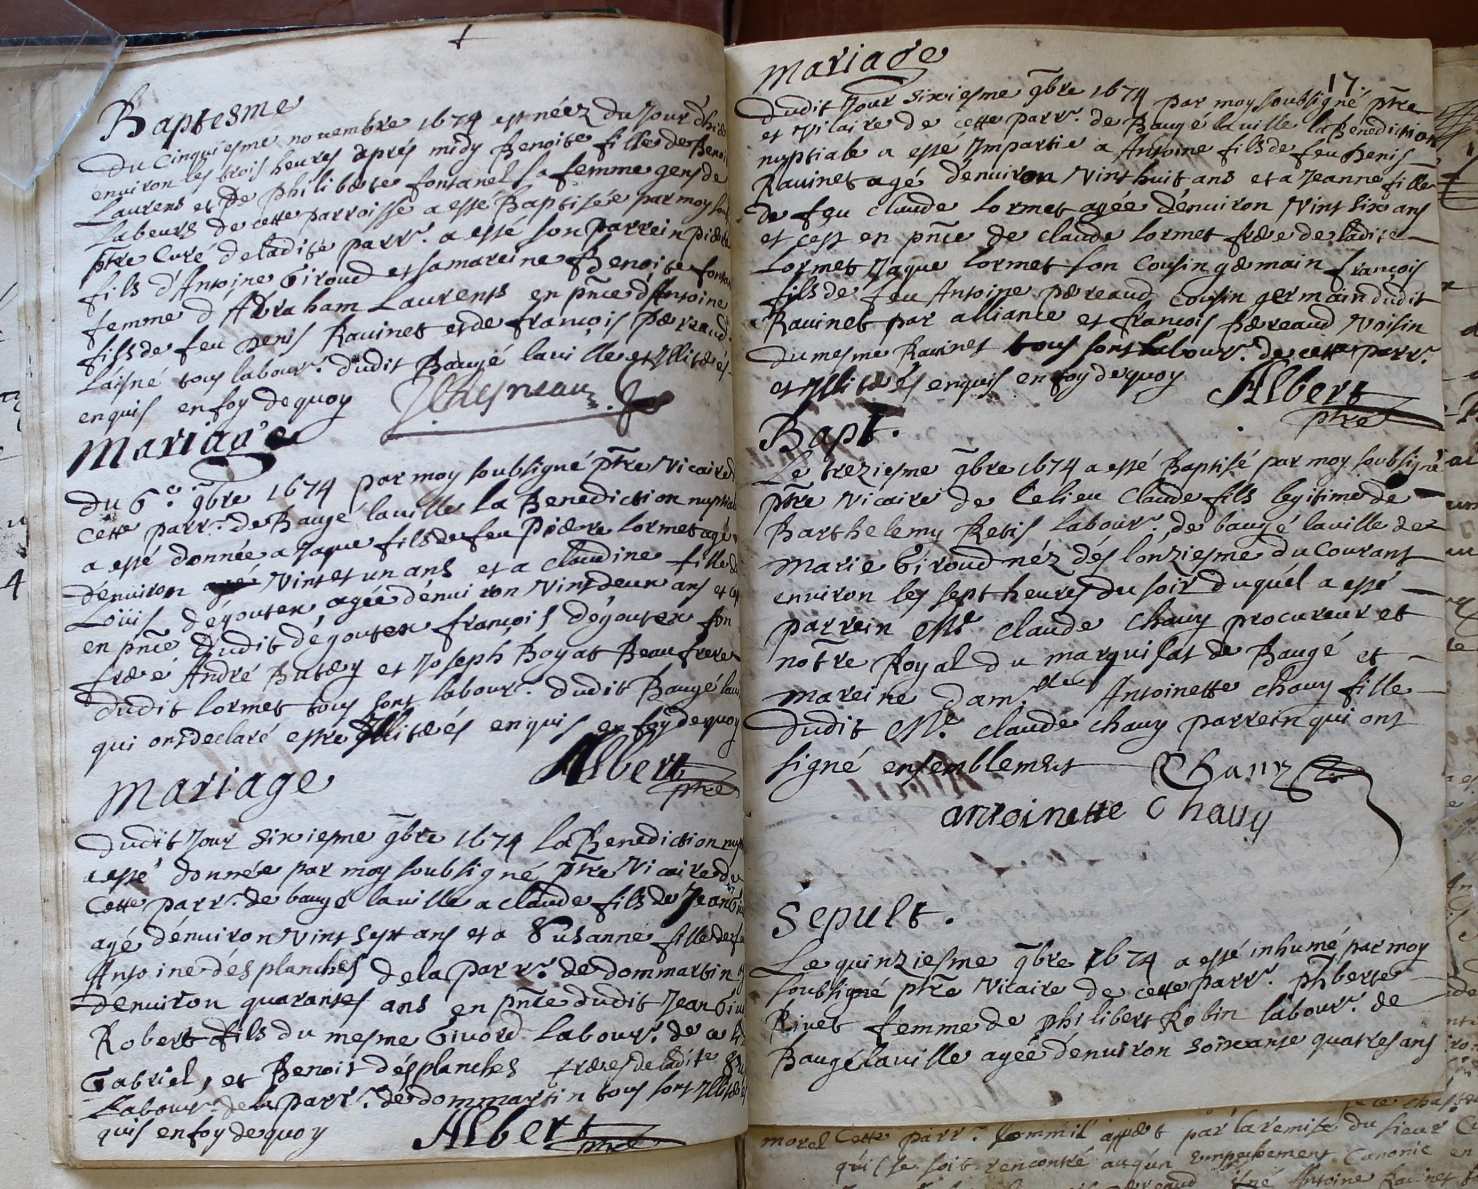 Baptesme
Du Cinquiesme nouembre 1674 est néez du Jour d'hier
enuiron les trois heures aprés midy Benoite fille de Benoit
Laurens et de Philiberte fontanel sa femme gens de
Labeurs de cette parroisse a esté Baptisée par moy soub
ptre Curé de ladite parr. a esté son parrein pierre
fils d'Antoine Giroud et sa mareine Benoite fontan
femme d'Abraham Laurents en pnce d'Antoine
fils de feu Denis Rauinet et de françois pereaud
Laisné tous labour. dudit Baugé lauille et Illiterés
enquis en foy de quoy
Mariage
Du 6e 9bre 1674 par moy soubsigné ptre Vicaire d
Cette parr. de Baugé lauille La Benediction nuptia
a esté donnée a Jaque fils de feu Pierre Lormet agé
d'enuiron Vint et un ans et a Claudine fille de
Loüis dégoutex agée d'enuiron Vint deux ans et ce
en pnce dudit dégoutex françois dégoutex son
frere André Buter et Joseph Boyat Beaufrere
dudit Lormet tous sont labour. dudit Baugé laui
qui ont declaré estre Illiterés enquis en foy de quoy
Albert
ptre
Mariage
Dudit Jour sixiesme 9bre 1674 La Benediction nup
a esté donnée par moy soubsigné ptre Vicaire de
Cette parr. de baugé lauille a claude fils de Jean
agé d'enuiron Vint sept ans et a Susanne fille de
Antoine désplanches de la parr. de dommartin
d'enuiron quarantes ans en pnce dudit Jean Giu
Robert fils du mesme Giuord Labour. de ce
Gabriel, et Benoit désplanches freres de ladite
Labour. de la parr. de dommartin tous sont Illiter
quis en foy de quoy
Albert
ptre
Mariage
17
Dudit Jour sixiesme 9bre 1674 par moy soubsigné ptre
et Vicaire de cette parr. de Baugé lauille la Benediction
nuptiale a esté Impartie a Antoine fils de feu Denis
Rauinet agé d'enuiron Vint huit ans et a Jeanne fille
de feu Claude Lormet agée d'enuiron Vint six ans
et cest en pnce de claude Lormet frere de ladite
Lormet Jaque Lormet son Cousin germain françois
fils de feu Antoine pereaud Cousin germain dudit
Rauinet par alliance et françois pereaud Voisin
du mesme Rauinet tous sont labour. de cette parr.
et Illiterés enquis en foy de quoy
Albert
ptre
Bapt.
Le treziesme 9bre 1674 a esté Baptisé par moy soubsigné
ptre Vicaire de Celieu Claude fils legitime de
Barthelemy Retis Labour. de baugé lauille de
Marie Giroud néz dés lonziesme du Courant
enuiron les sept heures du soir duquél a esté
parrein Mr. claude Chauy procureur et
notre Royal du marquisat de Baugé et
mareine Dam.lle Antoinette Chauy fille
dudit Mr. claude Chauy parrein qui ont
signé ensemblement
Chauy
antoinette Chauy
Sepult.
Le quinziesme 9bre 1674 a esté inhumé par moy
soubsigné ptre Vicaire de cette parr. phberte
Riuet femme de philibert Robin labour. de
Baugé lauille agée d'enuiron soixante quatres ans
morel Cette parr. par la remise du sieur
qu'il se soit rencontré aucun Empechement Canonic en
Antoine Rauinet